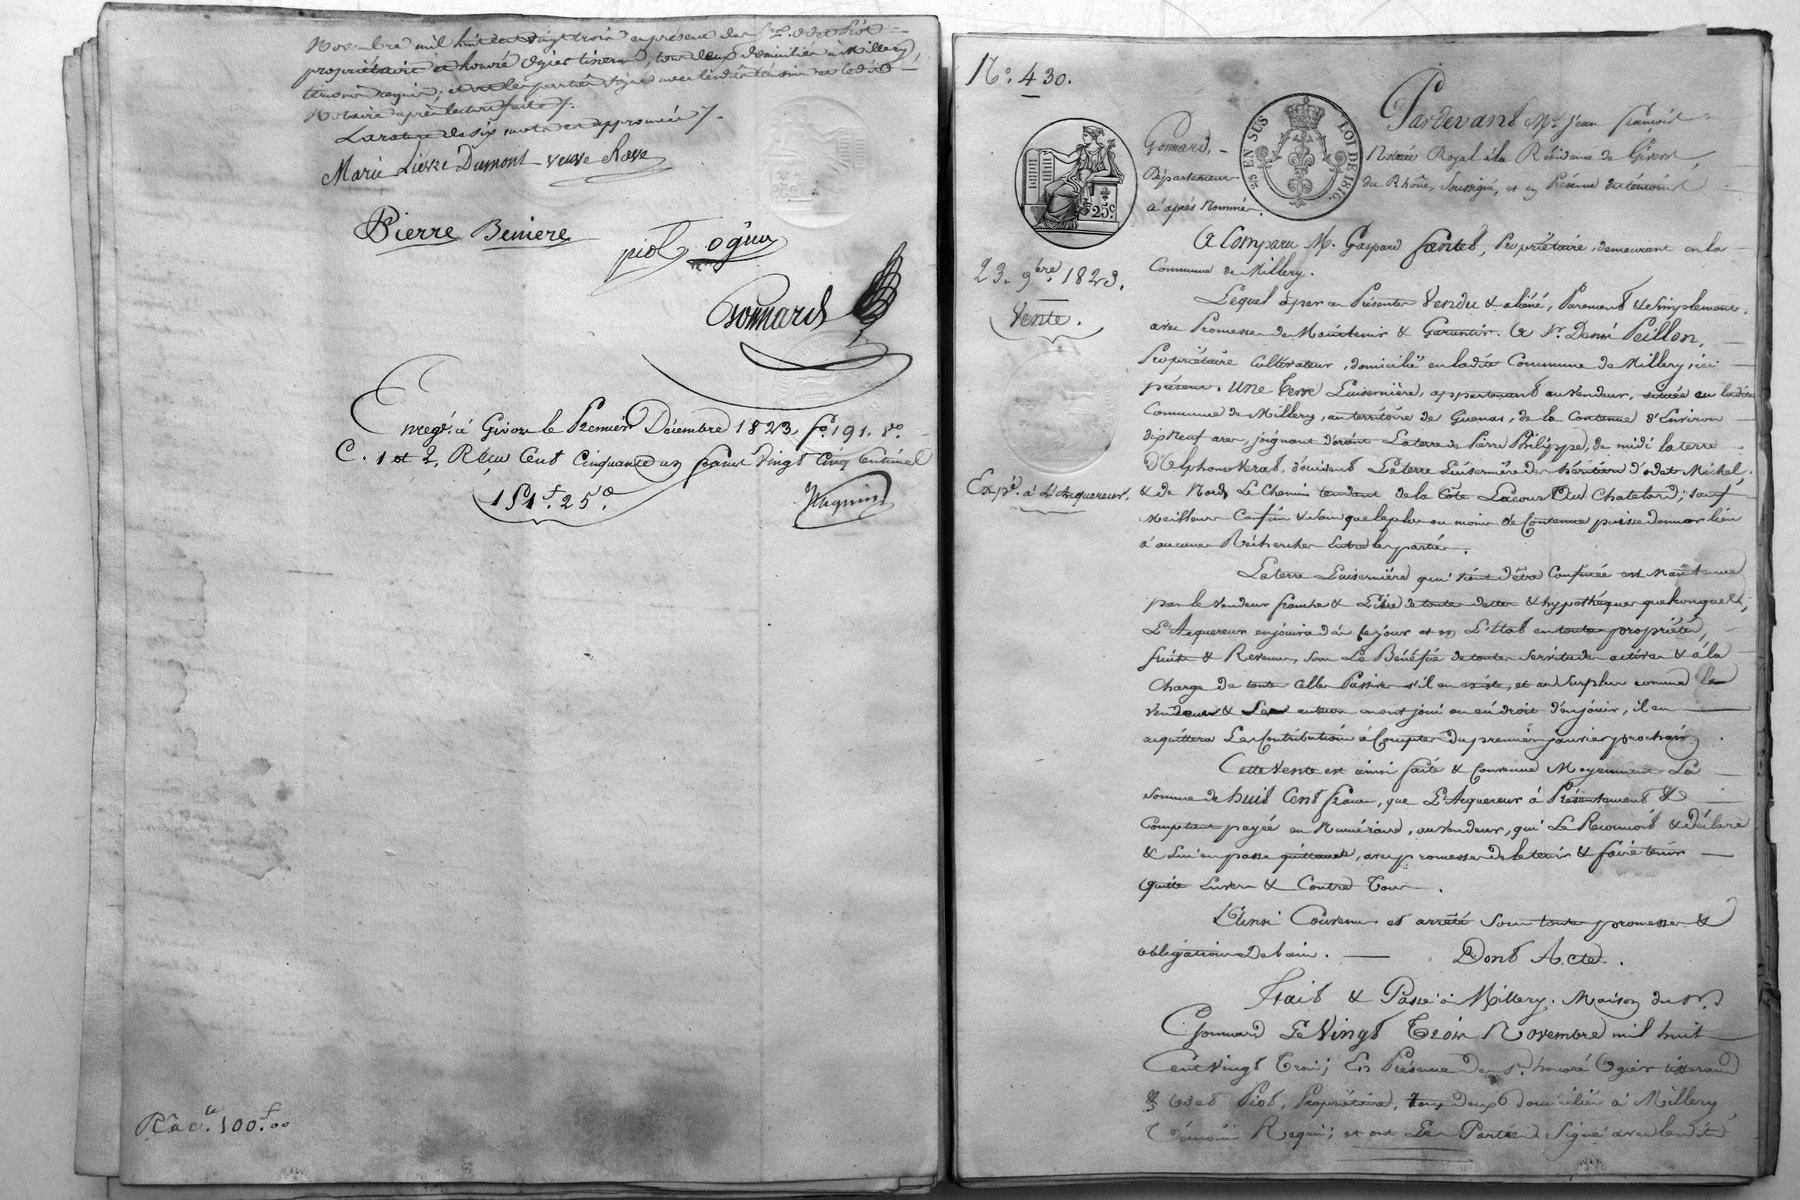 Novembre mil huit cent vingt trois en présence des Srs. Odet Piot
propriétaire et honoré Ogier tisserand, tous deux domiciliés à Millery,
témoins requis; et ont les parties signé avec lesdits témoins et ledit
Notaire après lecture faite /.
La rature de six mots est approuvée /.
Marie Lievre Dumont veuve
Pierre Beniere
piot ogier
Gonnard
Enregé. à Givors le Premier Décembre 1823 fo. 191. vo.
C. 1 et 2. Reçu Cent Cinquante un francs Vingt Cinq Centimes
151 f. 25 c.
100 f. 00
No. 430.
Pardevant Me. Jean françois
Gonnard, Notaire Royal à la Résidence de Givors,
Département du Rhône, Soussigné, et en Présence des témoins
ci après Nommés.
EN SUS
LOI DE 1816.
25c.
23. 9bre. 1823.
Vente.
Expé. à L'Acquereur.
A Comparu M. Gaspard Propriétaire, demeurant en la
Commune de Millery.
Lequel a par ces Présentes Vendu & aliéné, Purement & Simplement,
avec Promesse de Maintenir & Garantir. A Sr. Denis Peillon,
Propriétaire Cultivateur, domicilié en ladite Commune de Millery, ici
présent. Une terre Luisernière, appartenant au vendeur, située en ladite
Commune de Millery, au territoire de de la Contenue d'Environ
dix neuf ares, joignant d'orient La terre de Pierre Philippe, de midi la terre
d'Alphonse d'occident La terre Luisernière des héritiers d'odet Michel,
& de Nord, Le Chemin tendant de la Côte Lacour Au Chatelard; sauf
meilleurs Confins & sans que le plus ou moins de Contenue puisse donner lieu
à aucunes Recherches Entre les parties.
La terre Luisernière qui vient d'être Confinée est Maintenue
par le vendeur franche & Libre de toutes dettes & hypothèques quelconques,
L'Acquereur en jouira dès ce jour et en L'état en toute propriété,
fruits & Revenus, sous Le Bénéfice de toutes servitudes actives & à la
Charge de toutes celles Passives s'il en existe, et au Surplus comme le
Vendeur & Ses auteurs en ont joui ou eu droit d'en jouir, il en
acquittera Les Contributions à Compter du premier janvier prochain.
Cette vente est ainsi faite & Convenue Moyennant La
Somme de huit Cent francs, que L'Acquereur a Présentement &
Comptant payée en Numéraire, au vendeur, qui Le Reconnoit & déclare
& Lui en passe quittance, avec promesse de le tenir & faire tenir
quitte Envers & Contre Tous.
Ainsi Convenu et arrêté Sous toutes promesses &
obligations de biens. Dont Acte.
Fait & Passé à Millery. Maison du Sr.
Gonnard Le Vingt Trois Novembre mil huit
Cent Vingt Trois; En Présence des Srs. honoré Ogier tisserand
& Odet Piot, Propriétaire, tous deux domiciliés à Millery,
Témoins Requis; et ont Les Parties Signé avec lesdits